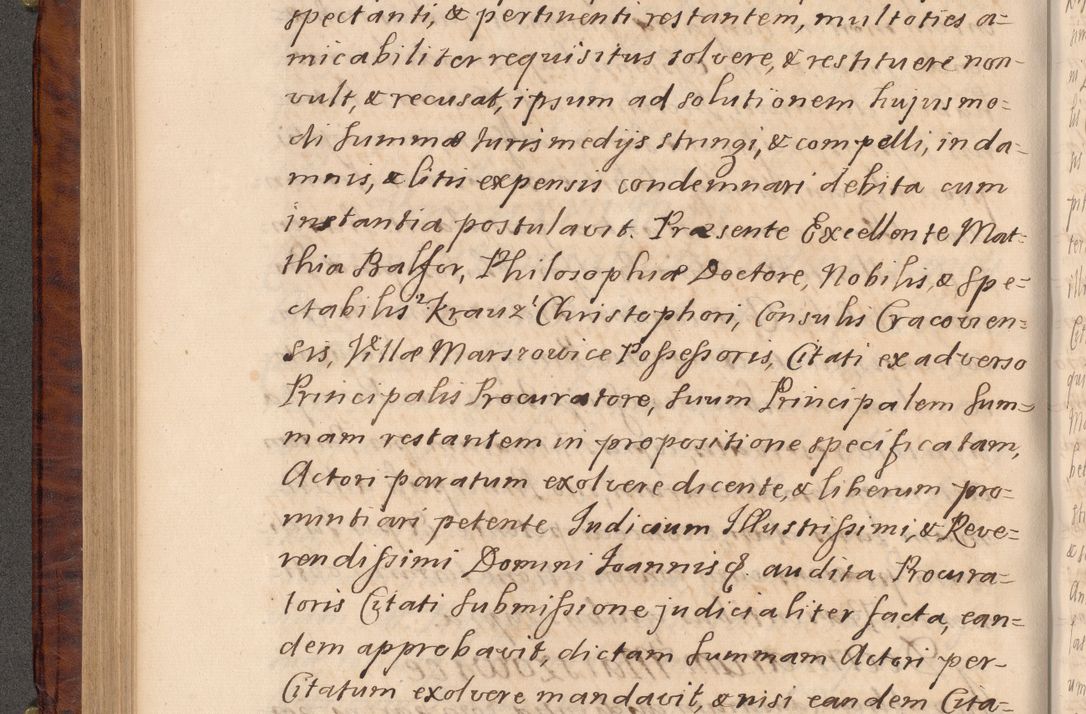 spectanti, & pertinenti restantem, multoties a=
micabiliter requisitus solvere, & restituere non
vult, & recusat, ipsum ad solutionem hujusmo=
di Summæ Iuris medijs stringi, & compelli, in da=
mnis, & litis expensis condemnari debita cum
instantia postulavit. Præsente Excellente Mat=
thia Balfor, Philosophiæ Doctore, Nobilis, & Spe=
ctabilis Krauz Christophori, Consulis Cracovien=
sis, Villæ Marszowice Possessoris, Citati ex adverso
Principalis Procuratore, Suum Principalem Sum=
mam restantem in propositione specificatam,
Actori paratum exolvere dicente, & liberum pro=
nuntiari petente Iudicium Illustrissimi, & Reve=
rendissimi Domini Ioannis &. audita Procura=
toris Citati Submissione judicialiter facta, ean=
dem approbavit, dictam Summam Actori per
Citatum exolvere mandavit, & nisi eandem Cita=